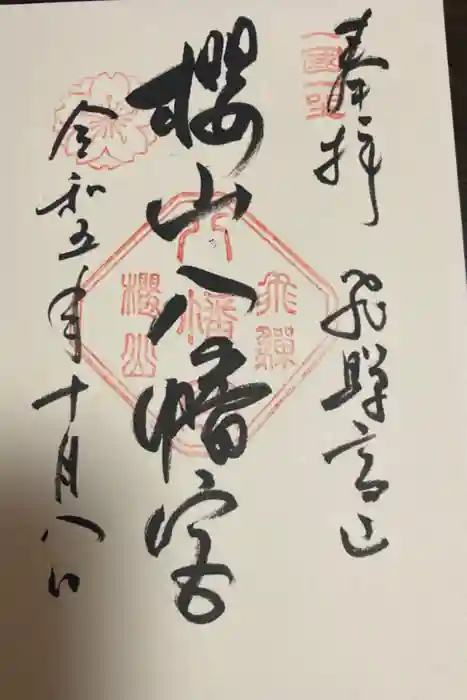 奉拝
飛騨高山
櫻山八幡宮
令和五年十月八日
飛騨
八幡
櫻山